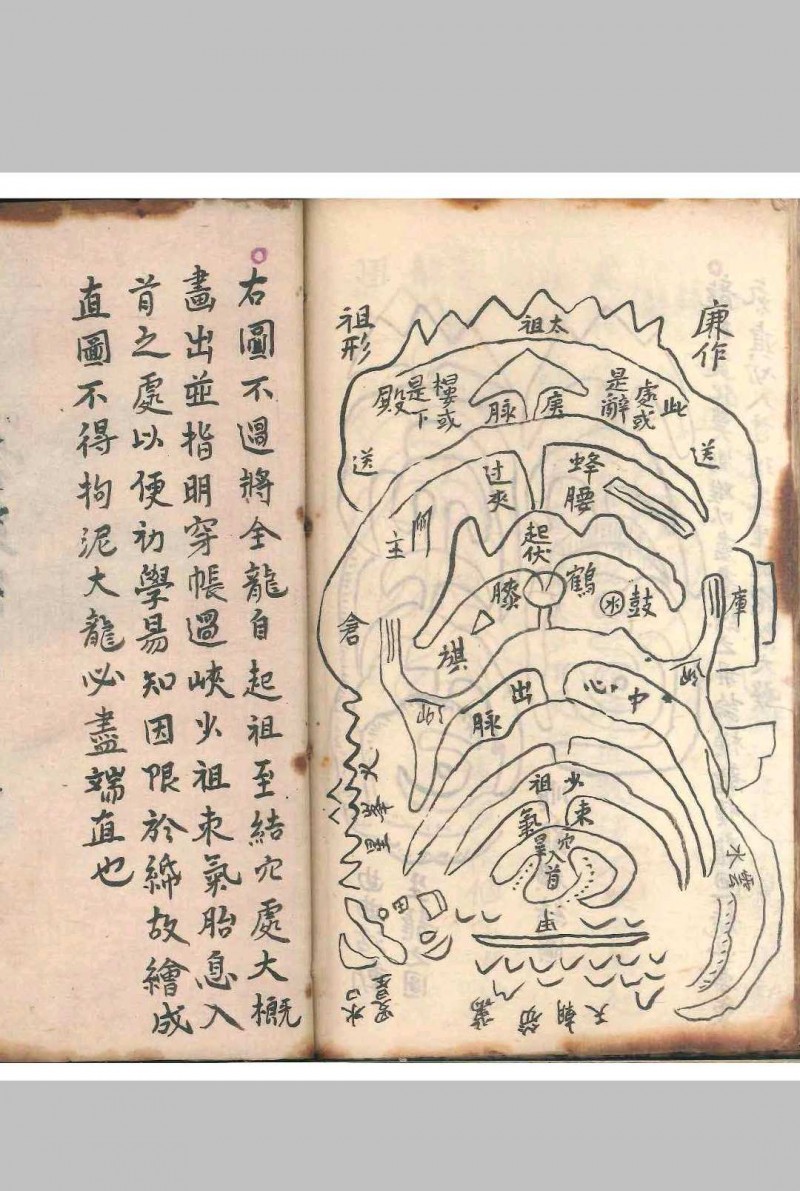 廉作
祖形
太祖
此處或是辭樓或是下殿
唐脉
送
送
蜂腰
过夾
主
起伏
鶴膝
鼓
水
旗
倉
庫
中心出脉
少祖
束氣
穴星
入首
水
天朝
右圖不過將全龍自起祖至結穴處大概
畫出並指明穿帳過峽少祖束氣胎息入
首之處以便初學易知因限於綿故繪成
直圖不得拘泥大龍必盡端直也